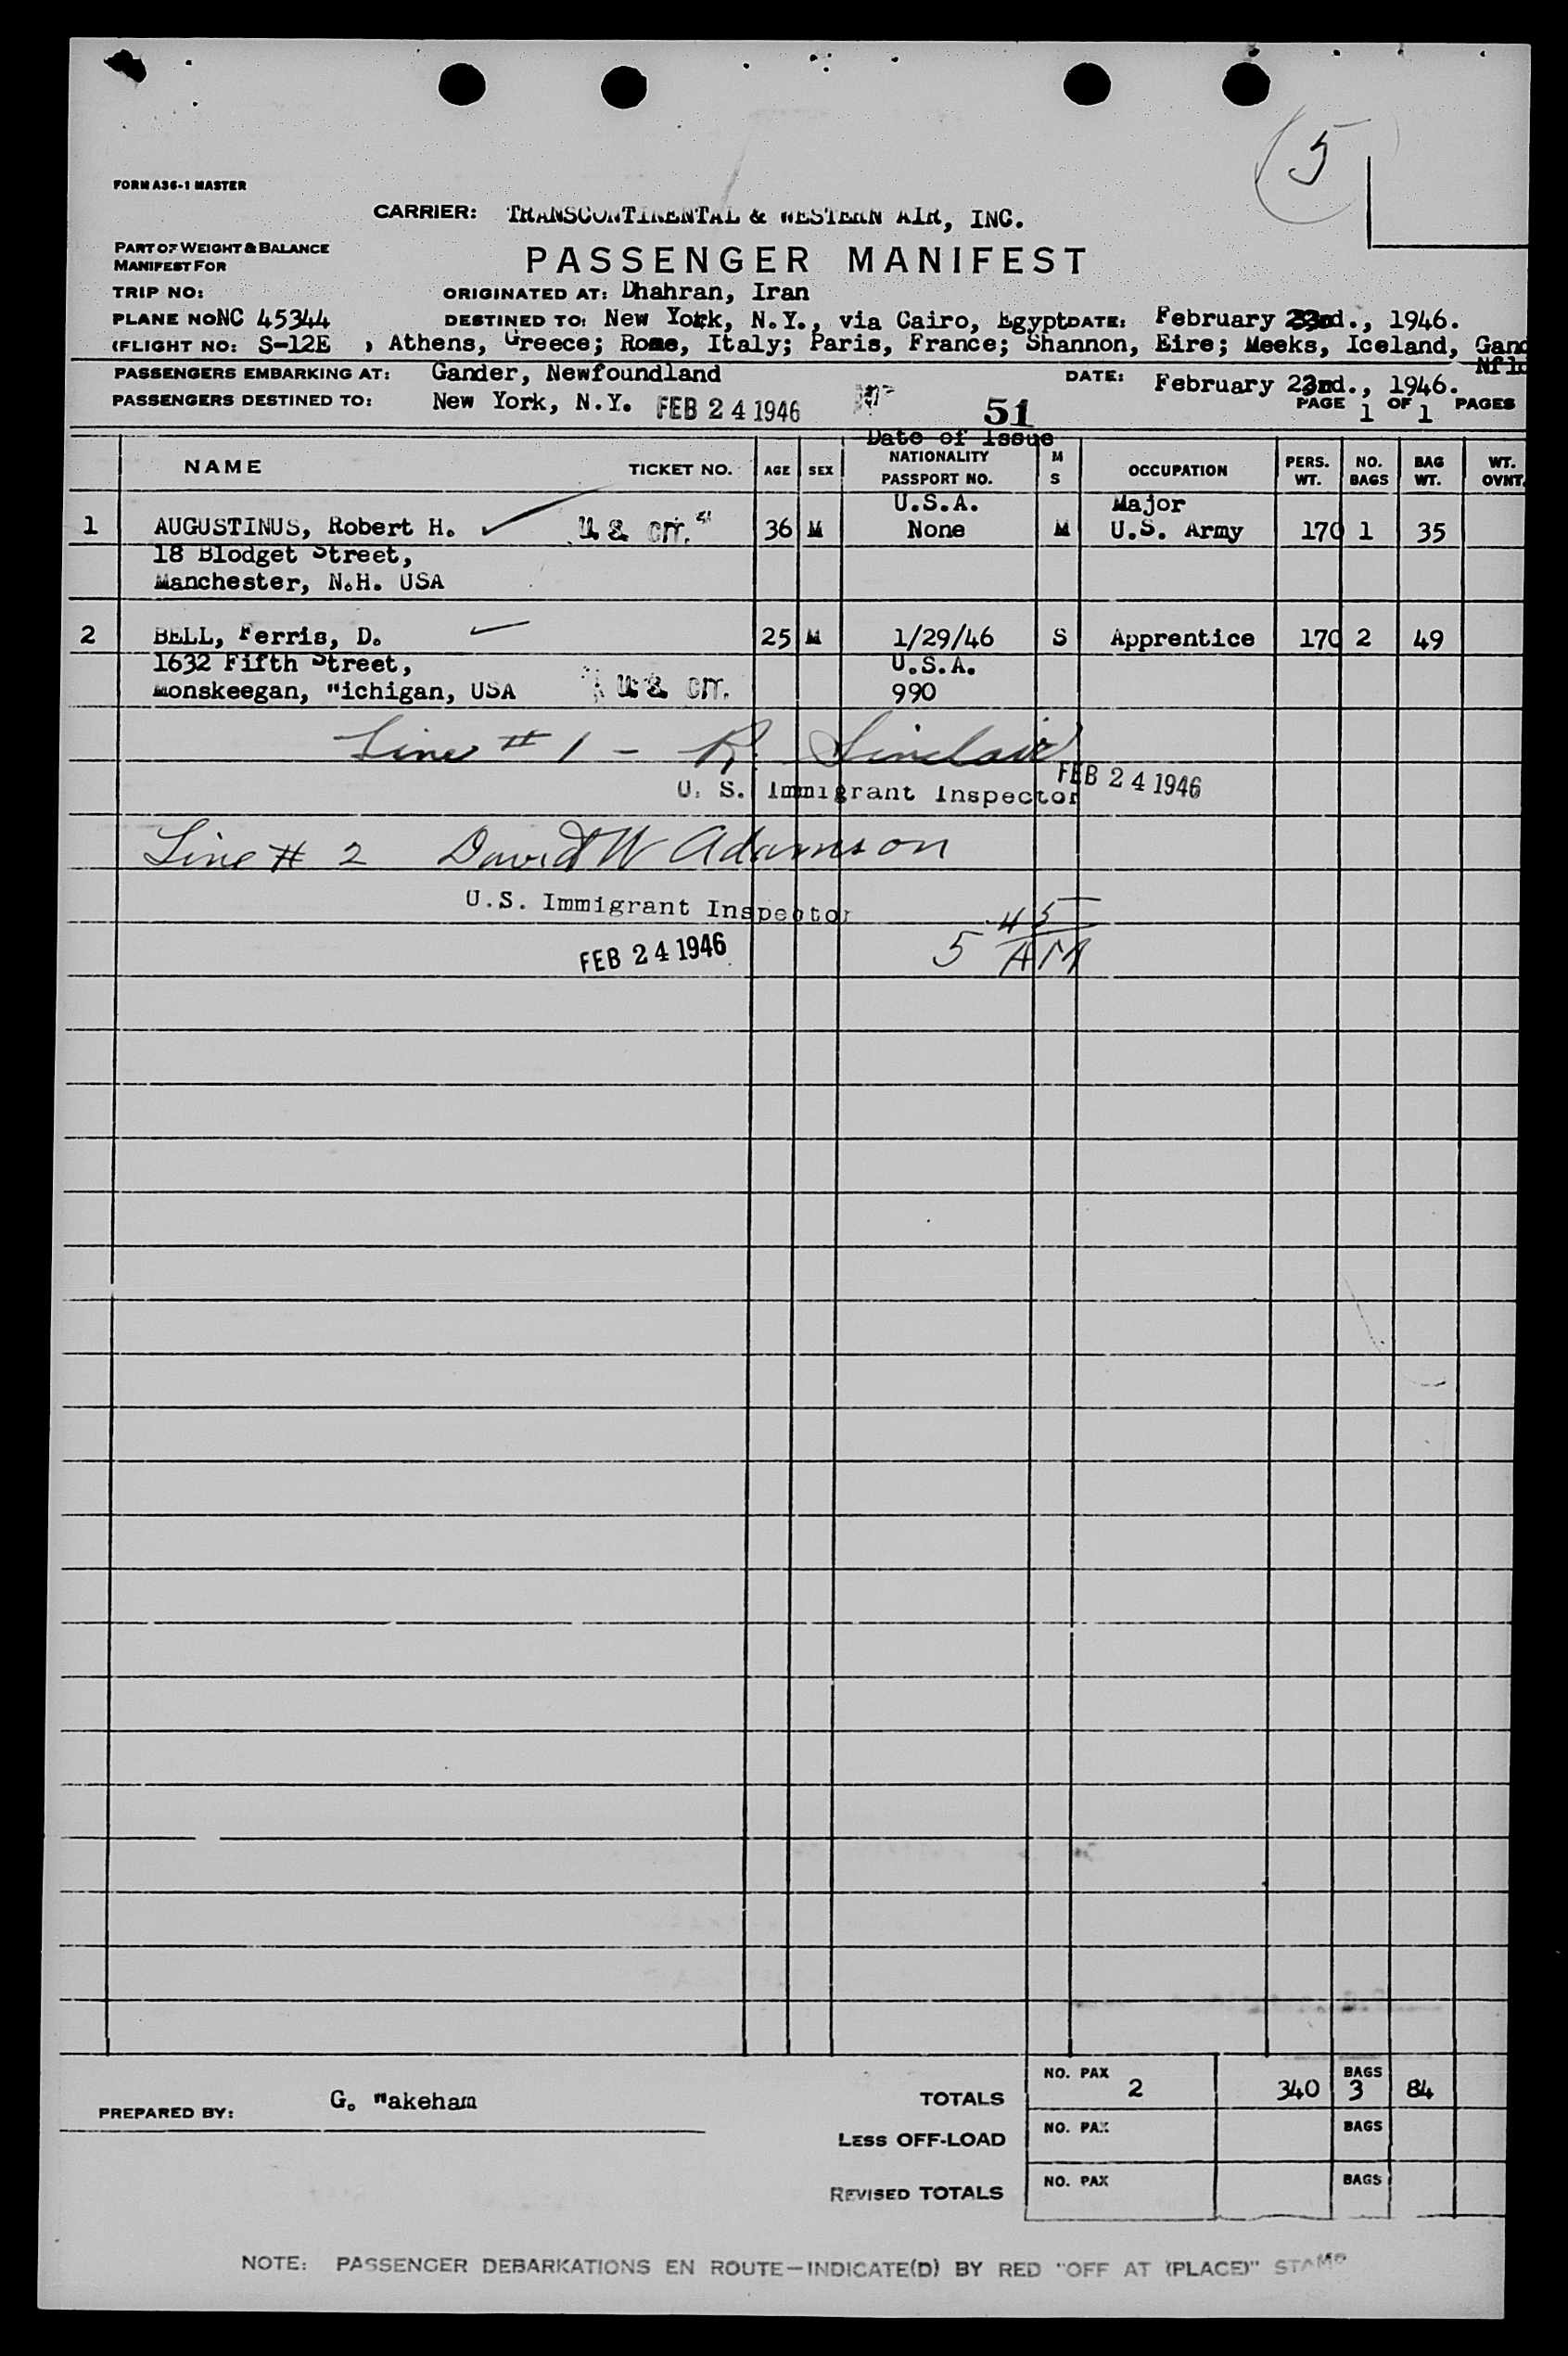 5
FORM A36-1 MASTER
CARRIER: TRANSCONTINENTAL & WESTERN AIR, INC.
PART OF WEIGHT & BALANCE
MANIFEST FOR
PASSENGER MANIFEST
TRIP NO: ORIGINATED AT: Dhahran, Iran
PLANE NO NC 45344 DESTINED TO: New York, N.Y., via Cairo, Egypt DATE: February 23rd., 1946.
(FLIGHT NO: S-12E , Athens, Greece; Rome, Italy; Paris, France; Shannon, Eire; Meeks, Iceland, Gand
Nfld
PASSENGERS EMBARKING AT: Gander, Newfoundland DATE: February 23rd., 1946.
PASSENGERS DESTINED TO: New York, N.Y. FEB 24 1946 51 PAGE 1 OF 1 PAGES
Date of Issue
NAME TICKET NO. AGE SEX NATIONALITY PASSPORT NO. M S OCCUPATION PERS. WT. NO. BAGS BAG WT. WT. OVNT.
U.S.A. Major
1 AUGUSTINUS, Robert H. U.S. CIT. 36 M None M U.S. Army 170 1 35
18 Blodget Street,
Manchester, N.H. USA
2 BELL, Ferris, D. 25 M 1/29/46 S Apprentice 170 2 49
1632 Fifth Street, U.S.A.
Monskeegan, "ichigan, USA U.S. CIT. 990
Line # 1 - R. Sinclair
U. S. Immigrant Inspector FEB 24 1946
Line # 2 David W Adamson
U.S. Immigrant Inspector
FEB 24 1946 5 45 AM
PREPARED BY: G. "akeham
TOTALS NO. PAX 2 340 BAGS 3 84
LESS OFF-LOAD NO. PAX BAGS
REVISED TOTALS NO. PAX BAGS
NOTE: PASSENGER DEBARKATIONS EN ROUTE—INDICATE(D) BY RED "OFF AT (PLACE)" STAMP